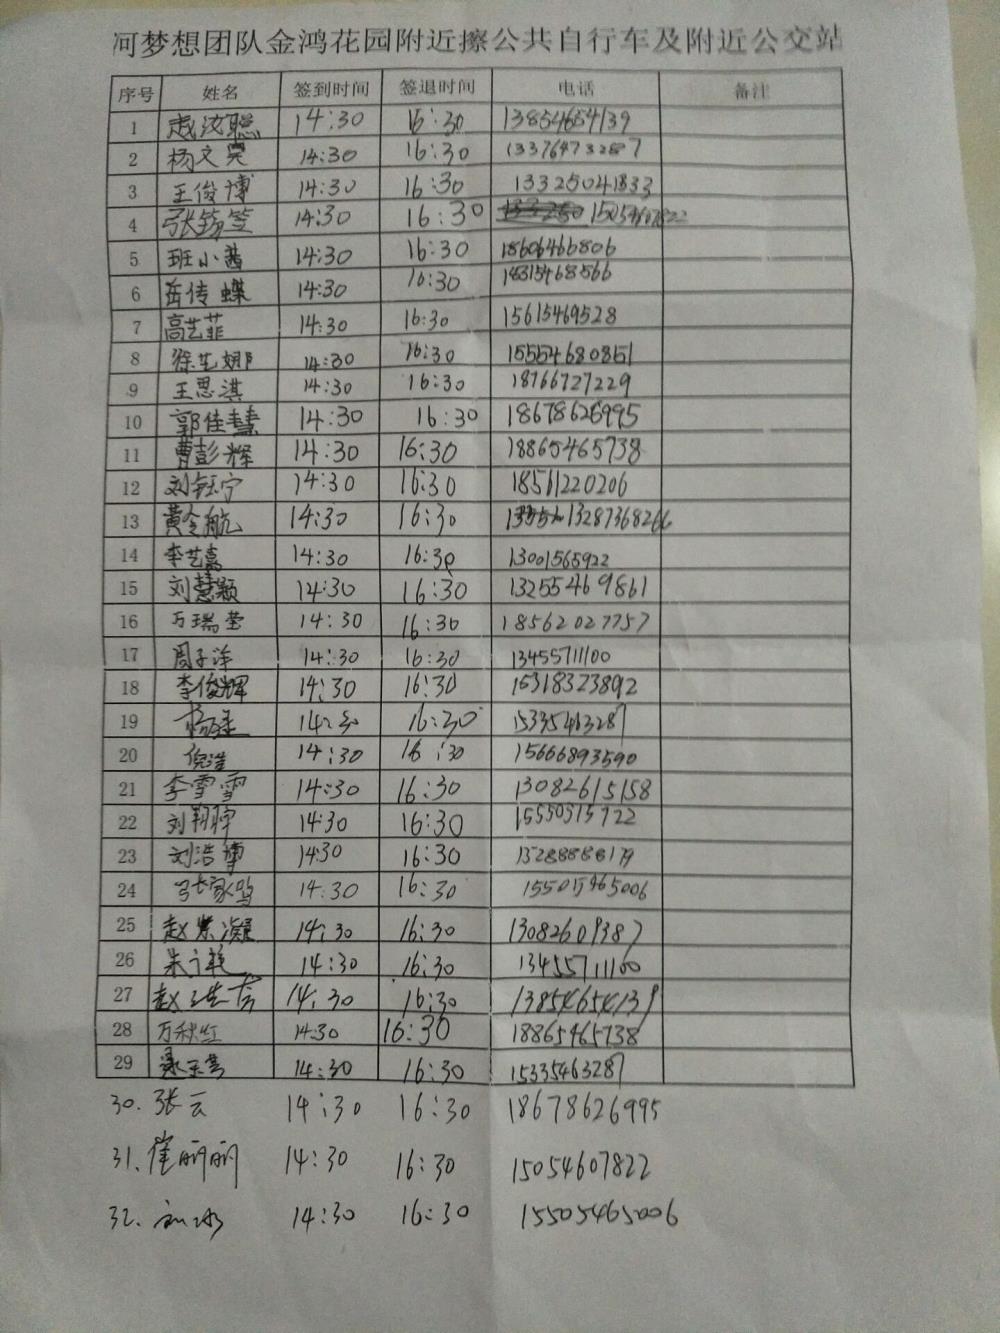 河梦想团队金鸿花园附近擦公共自行车及附近公交站
序号 姓名 签到时间 签退时间 电话 备注
1 赵汝聪 14:30 16:30 13854654139
2 杨文昊 14:30 16:30 13376473287
3 王俊博 14:30 16:30 13325041833
4 张 14:30 16:30 15054607822
5 班小茜 14:30 16:30 18606466806
6 岳传蝶 14:30 16:30 18315468566
7 高艺菲 14:30 16:30 15615469528
8 徐艺娜 14:30 16:30 15554680851
9 王思淇 14:30 16:30 18766727229
10 郭佳慧 14:30 16:30 18678626995
11 曹彭辉 14:30 16:30 18865465738
12 刘钰宁 14:30 16:30 18561220206
13 黄令航 14:30 16:30 13287368266
14 李艺嘉 14:30 16:30 13001565922
15 刘慧颖 14:30 16:30 13255469861
16 万瑞莹 14:30 16:30 18562027757
17 周子洋 14:30 16:30 13455711100
18 李俊辉 14:30 16:30 15318323892
19 杨 14:30 16:30 15335463287
20 倪浩 14:30 16:30 15666893590
21 李雪雪 14:30 16:30 13082615158
22 刘翔宇 14:30 16:30 15550515722
23 刘浩博 14:30 16:30
24 张家鸣 14:30 16:30 15505465006
25 赵紫凝 14:30 16:30 13082609387
26 朱艳 14:30 16:30 13455711100
27 赵 14:30 16:30 13854654139
28 万秋红 14:30 16:30 18865465738
29 14:30 16:30 15335463287
30. 张云 14:30 16:30 18678626995
31. 崔丽丽 14:30 16:30 15054607822
32. 14:30 16:30 15505465006